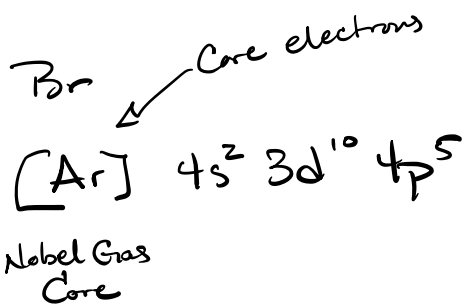 Core electrons
Br
[Ar] 4s² 3d¹⁰ 4p⁵
Nobel Gas
Core